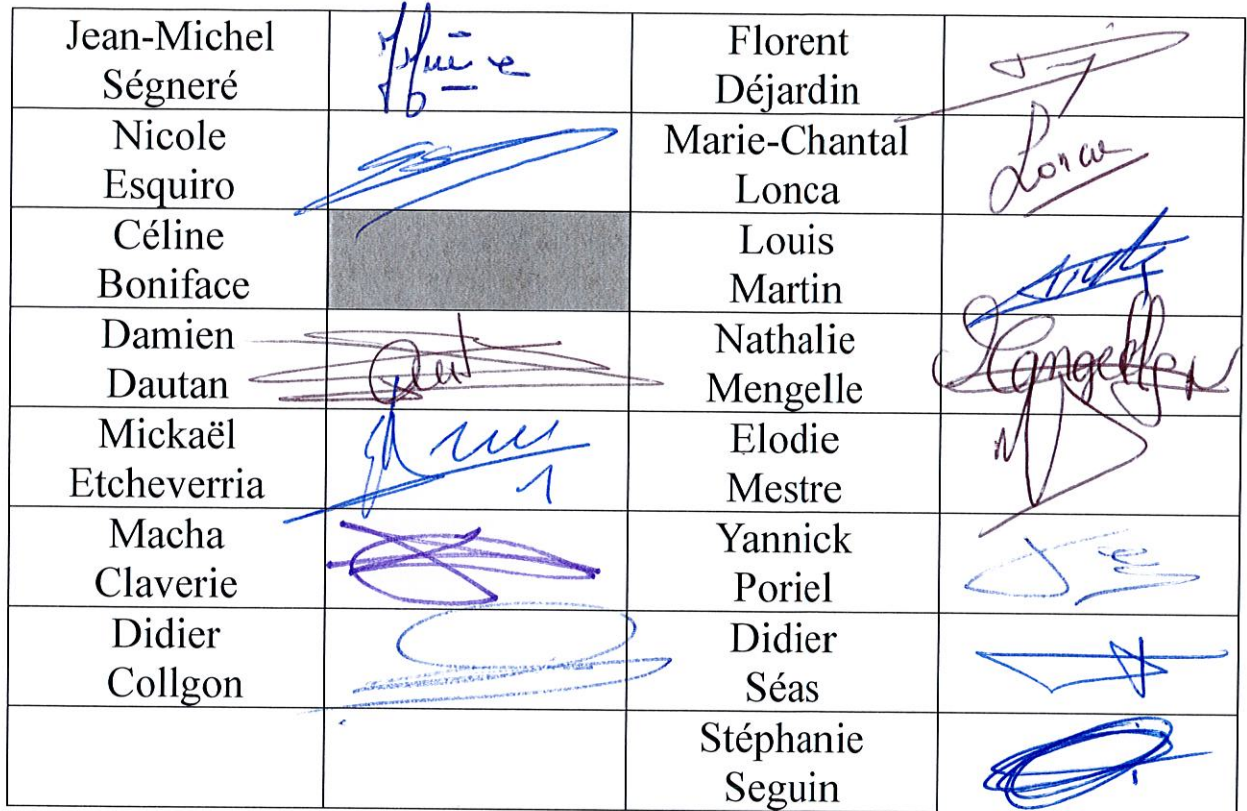 Jean-Michel
Ségneré
Florent
Déjardin
Nicole
Esquiro
Marie-Chantal
Lonca
Lonca
Céline
Boniface
Louis
Martin
Damien
Dautan
Nathalie
Mengelle
Mickaël
Etcheverria
Elodie
Mestre
Macha
Claverie
Yannick
Poriel
Didier
Collgon
Didier
Séas
Stéphanie
Seguin